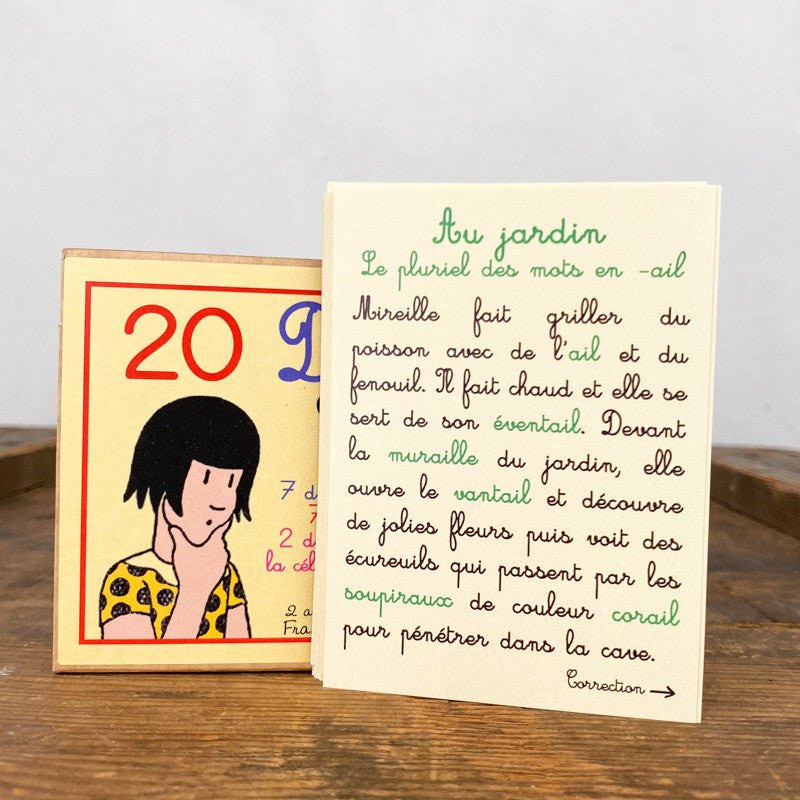 20
7
2
la
2
Au jardin
Le pluriel des mots en -ail
Mireille fait griller du
poisson avec de l'ail et du
fenouil. Il fait chaud et elle se
sert de son éventail. Devant
la muraille du jardin, elle
ouvre le vantail et découvre
de jolies fleurs puis voit des
écureuils qui passent par les
soupiraux de couleur corail
pour pénétrer dans la cave.
Correction →